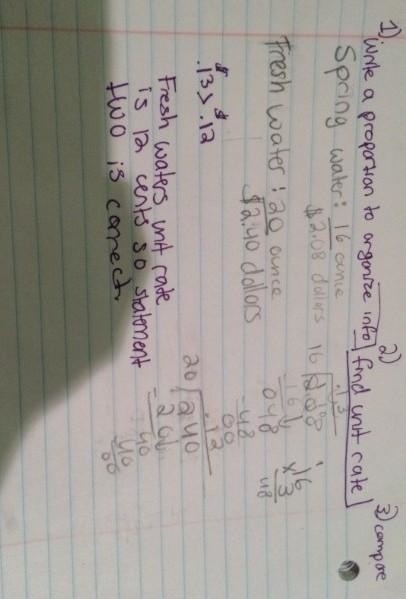 1) Write a proportion to organize info
2) find unit rate
3) compare
Spring water: 16 ounce
$2.08 dollars
.13
16 2.08
-16
048
-48
00
16
x3
48
Fresh water: 20 ounce
$2.40 dollars
.12
20 2.40
-20
40
-40
00
$.13 > $.12
Fresh waters unit rate
is 12 cents so statement
two is correct.